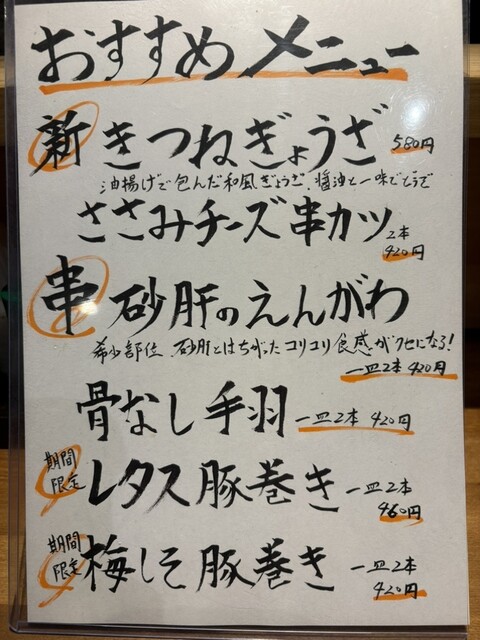 おすすめメニュー
新 きつねぎょうざ 580円
油揚げで包んだ和風ぎょうざ、醤油と一味でどうぞ
ささみチーズ串カツ 2本 420円
串 砂肝のえんがわ
希少部位 砂肝とはちがったコリコリ食感がクセになる!
一皿2本 420円
骨なし手羽 一皿2本 420円
期間限定 レタス豚巻き 一皿2本 460円
期間限定 梅しそ豚巻き 一皿2本 420円